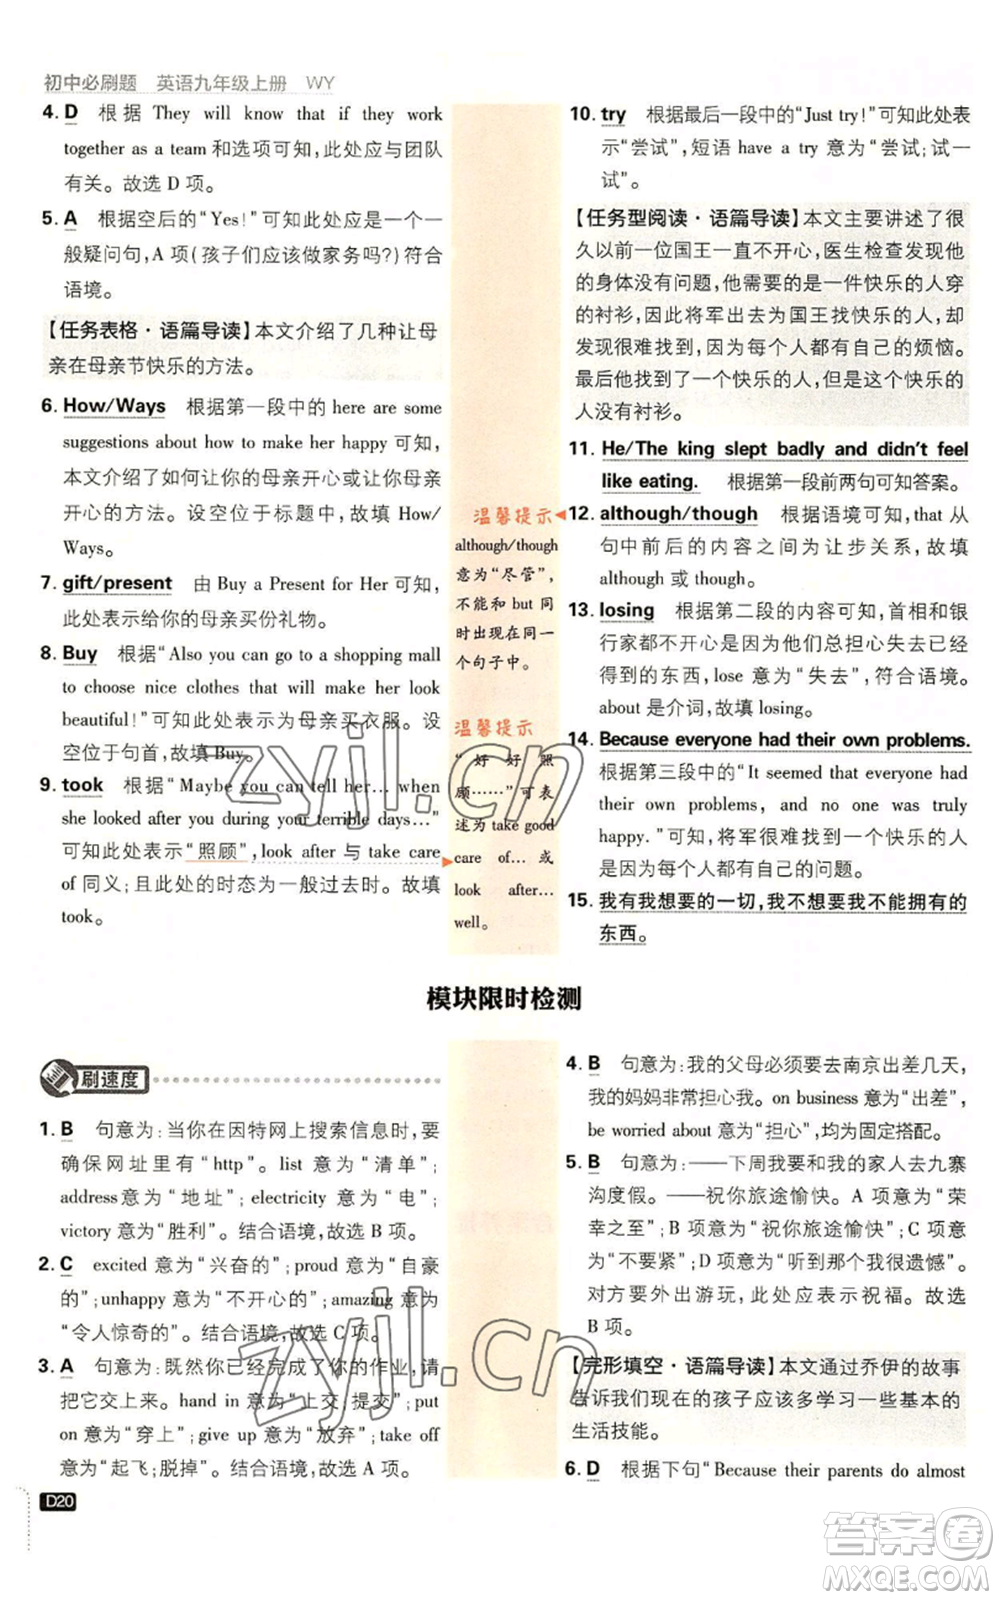 初中必刷题 英语九年级上册 WY
4. D 根据 They will know that if they work
together as a team 和选项可知,此处应与团队
有关。故选 D 项。
5. A 根据空后的“Yes!”可知此处应是一个一
般疑问句,A 项(孩子们应该做家务吗?)符合
语境。
【任务表格·语篇导读】本文介绍了几种让母
亲在母亲节快乐的方法。
6. How/Ways 根据第一段中的 here are some
suggestions about how to make her happy 可知,
本文介绍了如何让你的母亲开心或让你母亲
开心的方法。设空位于标题中,故填 How/
Ways。
7. gift/present 由 Buy a Present for Her 可知,
此处表示给你的母亲买份礼物。
8. Buy 根据“Also you can go to a shopping mall
to choose nice clothes that will make her look
beautiful!”可知此处表示为母亲买衣服。设
空位于句首,故填 Buy。
9. took 根据“Maybe you can tell her… when
she looked after you during your terrible days…”
可知此处表示“照顾”,look after 与 take care
of 同义;且此处的时态为一般过去时。故填
took。
温馨提示
although/though
意为“尽管”,
不能和 but 同
时出现在同一
个句子中。
温馨提示
“好好照
顾……”可表
述为 take good
care of… 或
look after…
well。
10. try 根据最后一段中的“Just try!”可知此处表
示“尝试”,短语 have a try 意为“尝试;试一
试”。
【任务型阅读·语篇导读】本文主要讲述了很
久以前一位国王一直不开心,医生检查发现他
的身体没有问题,他需要的是一件快乐的人穿
的衬衫,因此将军出去为国王找快乐的人,但
发现很难找到,因为每个人都有自己的烦恼。
最后他找到了一个快乐的人,但是这个快乐的
人没有衬衫。
11. He/The king slept badly and didn't feel
like eating. 根据第一段前两句可知答案。
12. although/though 根据语境可知,that 从
句中前后的内容之间为让步关系,故填
although 或 though。
13. losing 根据第二段的内容可知,首相和银
行家都不开心是因为他们总担心失去已经
得到的东西,lose 意为“失去”,符合语境。
about 是介词,故填 losing。
14. Because everyone had their own problems.
根据第三段中的“It seemed that everyone had
their own problems, and no one was truly
happy.”可知,将军很难找到一个快乐的人
是因为每个人都有自己的问题。
15. 我有我想要的一切,我不想要我不能拥有的
东西。
模块限时检测
刷速度
1. B 句意为:当你在因特网上搜索信息时,要
确保网址里有“http”。list 意为“清单”;
address意为“地址”;electricity 意为“电”;
victory 意为“胜利”。结合语境,故选 B 项。
2. C excited 意为“兴奋的”;proud 意为“自豪
的”;unhappy 意为“不开心的”;amazing 意为
“令人惊奇的”。结合语境,故选 C 项。
3. A 句意为:既然你已经完成了你的作业,请
把它交上来。hand in 意为“上交,提交”;put
on 意为“穿上”;give up 意为“放弃”;take off
意为“起飞;脱掉”。结合语境,故选 A 项。
4. B 句意为:我的父母必须要去南京出差几天,
我的妈妈非常担心我。on business 意为“出差”,
be worried about 意为“担心”,均为固定搭配。
5. B 句意为:——下周我要和我的家人去九寨
沟度假。——祝你旅途愉快。A 项意为“荣
幸之至”;B 项意为“祝你旅途愉快”;C 项意
为“不要紧”;D 项意为“听到那个我很遗憾”。
对方要外出游玩,此处应表示祝福。故选
B 项。
【完形填空·语篇导读】本文通过乔伊的故事
告诉我们现在的孩子应该多学习一些基本的
生活技能。
6. D 根据下句“Because their parents do almost
D20
zyjl.cn
zyjl.cn
答案卷
MXQE.COM